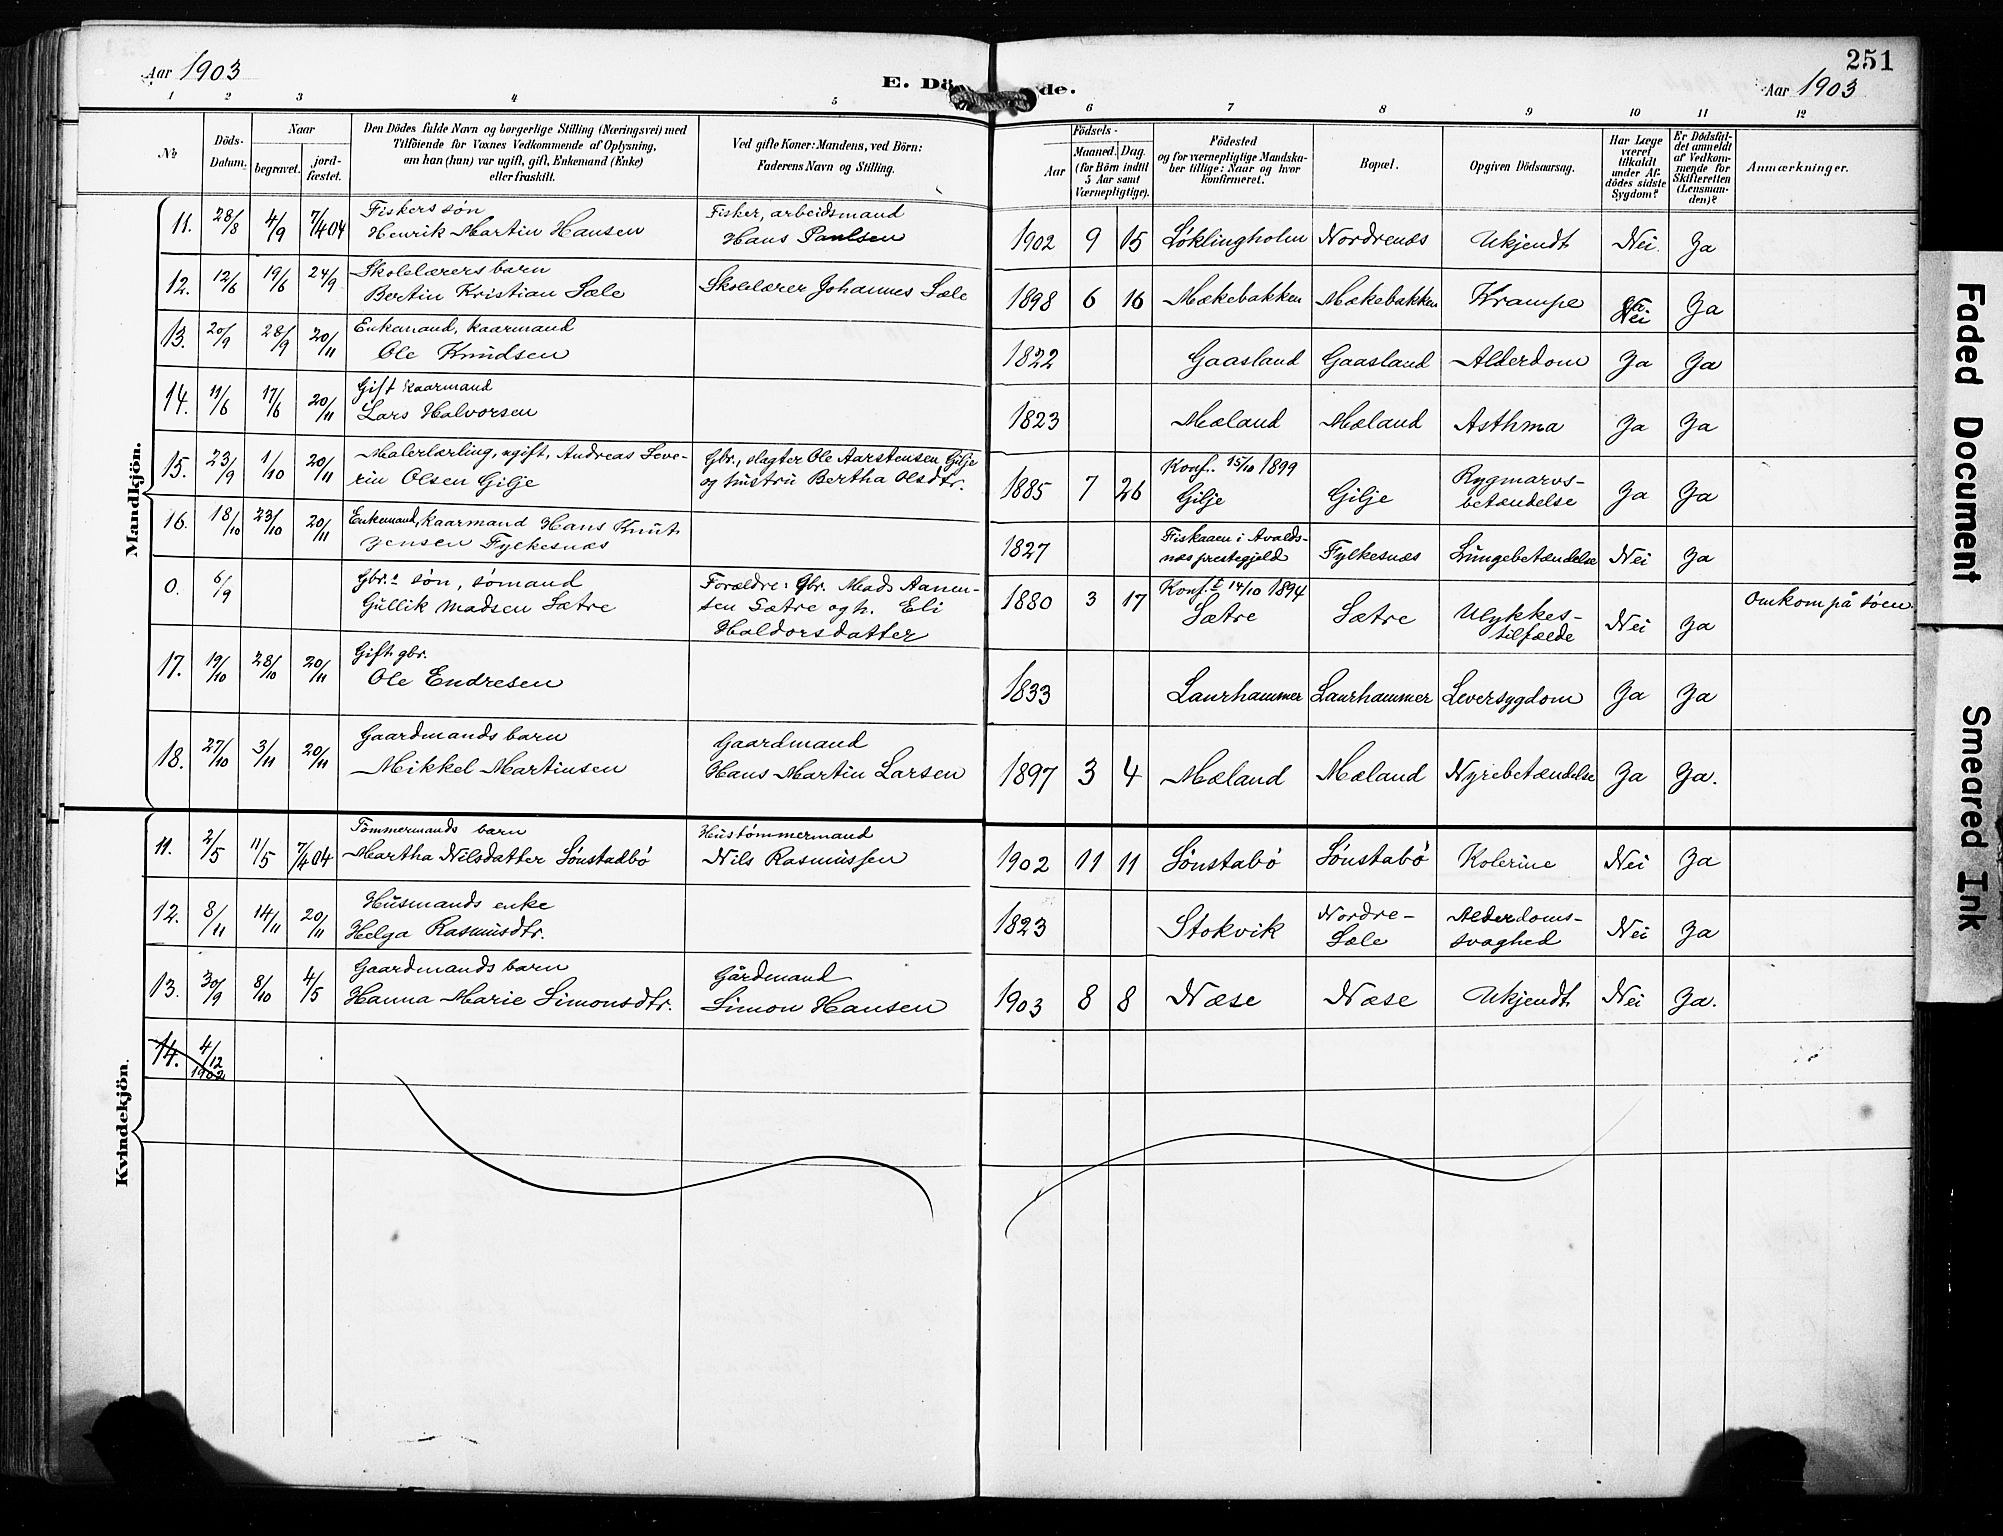 Aar 1903
E. Dö de.
251
Aar 1903
1 2 3 4 5 6 7 8 9 10 11 12
No
Döds-Datum.
Naar
begravet.
jord-fæstet.
Den Dödes fulde Navn og borgerlige Stilling (Næringsvei) med
Tilföiende for Voxnes Vedkommende af Oplysning,
om han (hun) var ugift, gift, Enkemand (Enke)
eller fraskilt.
Ved gifte Koner: Mandens, ved Börn:
Faderens Navn og Stilling.
Födsels-
Aar
Maaned. Dag.
(for Börn indtil
5 Aar samt
Værnepligtige).
Födested
og for værnepligtige Mandska-
ber tillige: Naar og hvor
konfirmeret.
Bopæl.
Opgiven Dödsaarsag.
Har Læge
været
tilkaldt
under Af-
dödes sidste
Sygdom?
Er Dödsfal-
det anmeldt
af Vedkom-
mende for
Skifteretten
(Lensman-
den)?
Anmærkninger.
Mandkjön.
11. 28/8 4/9 7/4 04 Fiskers søn
Henrik Martin Hansen
Fisker, arbeidsmand
Hans Paulsen
1902 9 15 Løklingholm Nordrenæs Ukjendt Nei. Ja
12. 12/6 19/6 24/9 Skolelærers barn
Bertin Kristian Sæle
Skolelærer Johannes Sæle
1898 6 16 Mækebakken Mækebakken Krampe Nei Ja
13. 20/9 28/9 20/11 Enkemand, kaarmand
Ole Knudsen
1822 Gaasland Gaasland Alderdom Ja Ja
14. 11/6 17/6 20/11 Gift kaarmand
Lars Halvorsen
1823 Mæland Mæland Asthma Ja Ja
15. 23/9 1/10 20/11 Malerlærling, ugift, Andreas Seve-
rin Olsen Gilje
Gbr., slagter Ole Aarstensen Gilje
og hustru Bertha Olsdtr.
1885 7 26 Konf. 15/10 1899
Gilje
Gilje
Rygmarvs-
betændelse
Ja Ja
16. 18/10 23/10 20/11 Enkemand, kaarmand Hans Knut
zensen Fylkesnæs
1827
Fiskaaen i Avalds-
næs prestegjeld
Fylkesnæs Lungebetændelse Nei Ja
0. 6/9 Gbr.s søn, sømand
Gullik Madsen Sætre
Forældre: Gbr. Mads Aamun-
sen Sætre og h. Eli
Haldorsdatter
1880 3 17 Konf.t 14/10 1894
Sætre
Sætre
Ulykkes-
tilfælde
Nei Ja Omkom på søen.
17. 19/10 28/10 20/11 Gift gbr.
Ole Endresen
1833 Laurhammer Laurhammer Leversygdom Ja Ja
18. 27/10 3/11 20/11 Gaardmands barn
Mikkel Martinsen
Gaardmand
Hans Martin Larsen
1897 3 4 Mæland Mæland Nyrebetændelse Ja Ja.
Kvindekjön.
11. 2/5 11/5 7/4 04 Tømmermands barn
Martha Nilsdatter Sønstadbø
Hustømmermand
Nils Rasmussen
1902 11 11 Sønstabø Sønstabø Kolerine Nei Ja
12. 8/11 14/11 20/11 Husmands enke
Helga Rasmusdtr.
1823 Stokvik
Nordre-
Sæle
Alderdoms-
svaghed
Nei Ja
13. 30/9 8/10 4/5 Gaardmands barn
Hanna Marie Simonsdtr.
Gårdmand
Simon Hansen
1903 8 8 Næse Næse Ukjendt Nei Ja.
14. 4/12 1902
Faded Document
Smeared Ink